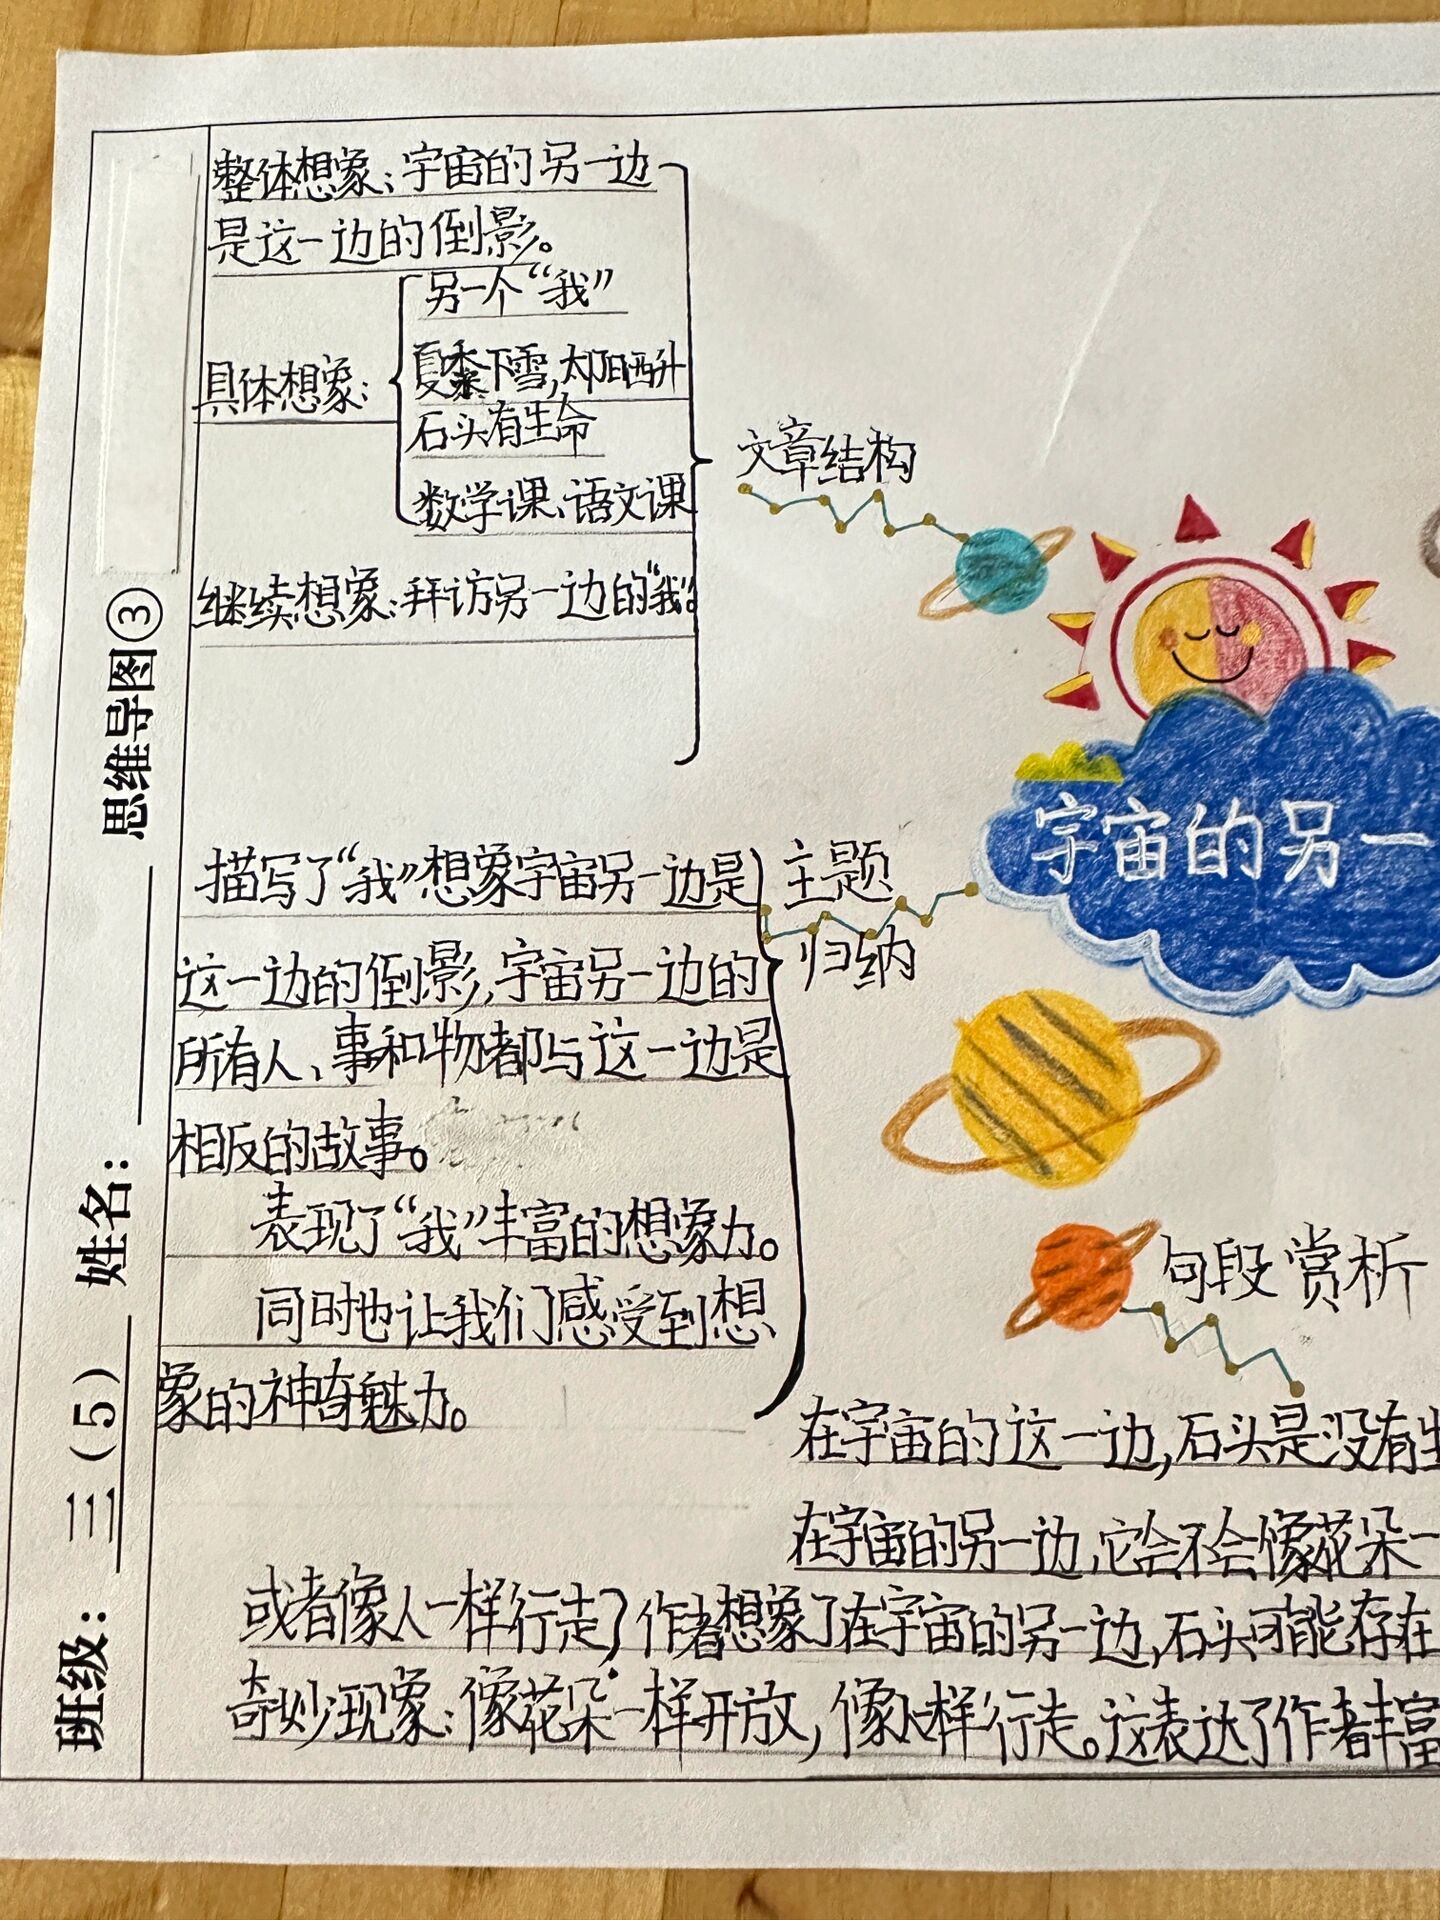 整体想象:宇宙的另一边
是这一边的倒影。
具体想象:
另一个“我”
夏季下雪,太阳西升
石头有生命
数学课、语文课
继续想象:拜访另一边的“我”。
文章结构
宇宙的另一
描写了“我”想象宇宙另一边是
这一边的倒影,宇宙另一边的
所有人、事和物都与这一边是
相反的故事。
表现了“我”丰富的想象力。
同时也让我们感受到想
象的神奇魅力。
主题
归纳
句段赏析
在宇宙的这一边,石头是没有生
在宇宙的另一边,它会不会像花朵一
或者像人一样行走?作者想象了在宇宙的另一边,石头可能存在
奇妙现象:像花朵一样开放,像人一样行走。这表达了作者丰富
班级: 三(5) 姓名: 思维导图③